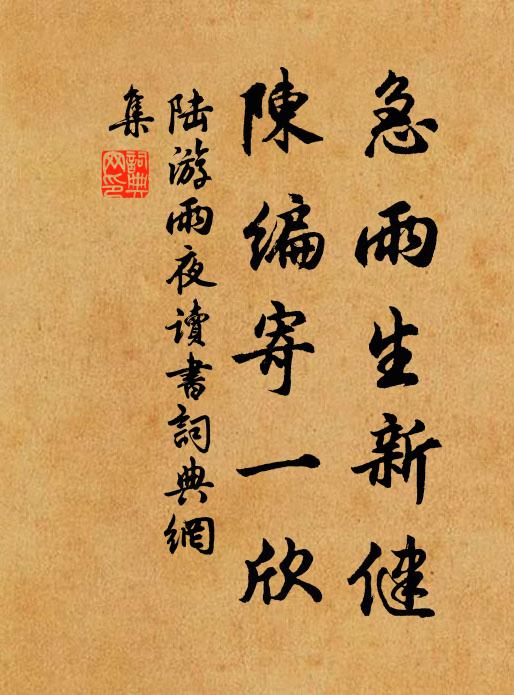 急雨生新健
陳編寄一欣
陸游雨夜讀書詞典網
集
詞典
網印